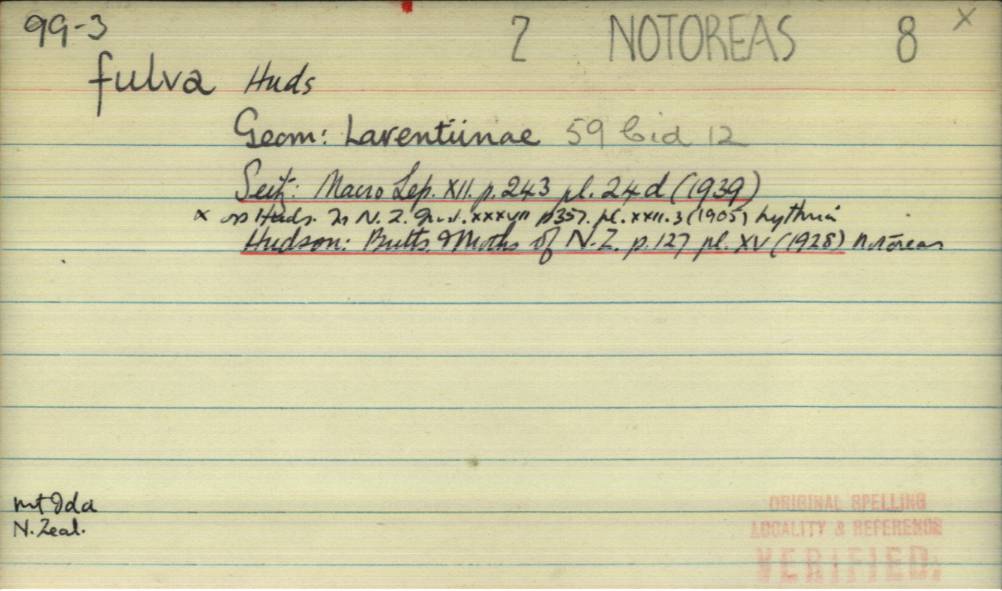 99-3
2 NOTOREAS 8 x
fulva Huds
Geom: Larentiinae 59 Cid 12
Seitz: Macro Lep. XII. p. 243 pl. 24d (1939)
x Huds. N. Z. xxxvii p357. pl. xxii. 3 (1905) hythria
Hudson: Butts & Moths of N.Z. p. 127 pl. XV (1928) notoreas
mt Ida
N. Zeal.
ORIGINAL SPELLING
LOCALITY & REFERENCE
VERIFIED.